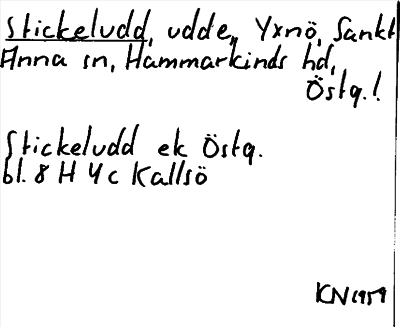 Stickeludd, udde, Yxnö, Sankt
Anna sn, Hammarkinds hd,
Östg.!
Stickeludd ek Östg.
bl. 8 H 4 c Kallsö
KN 1959